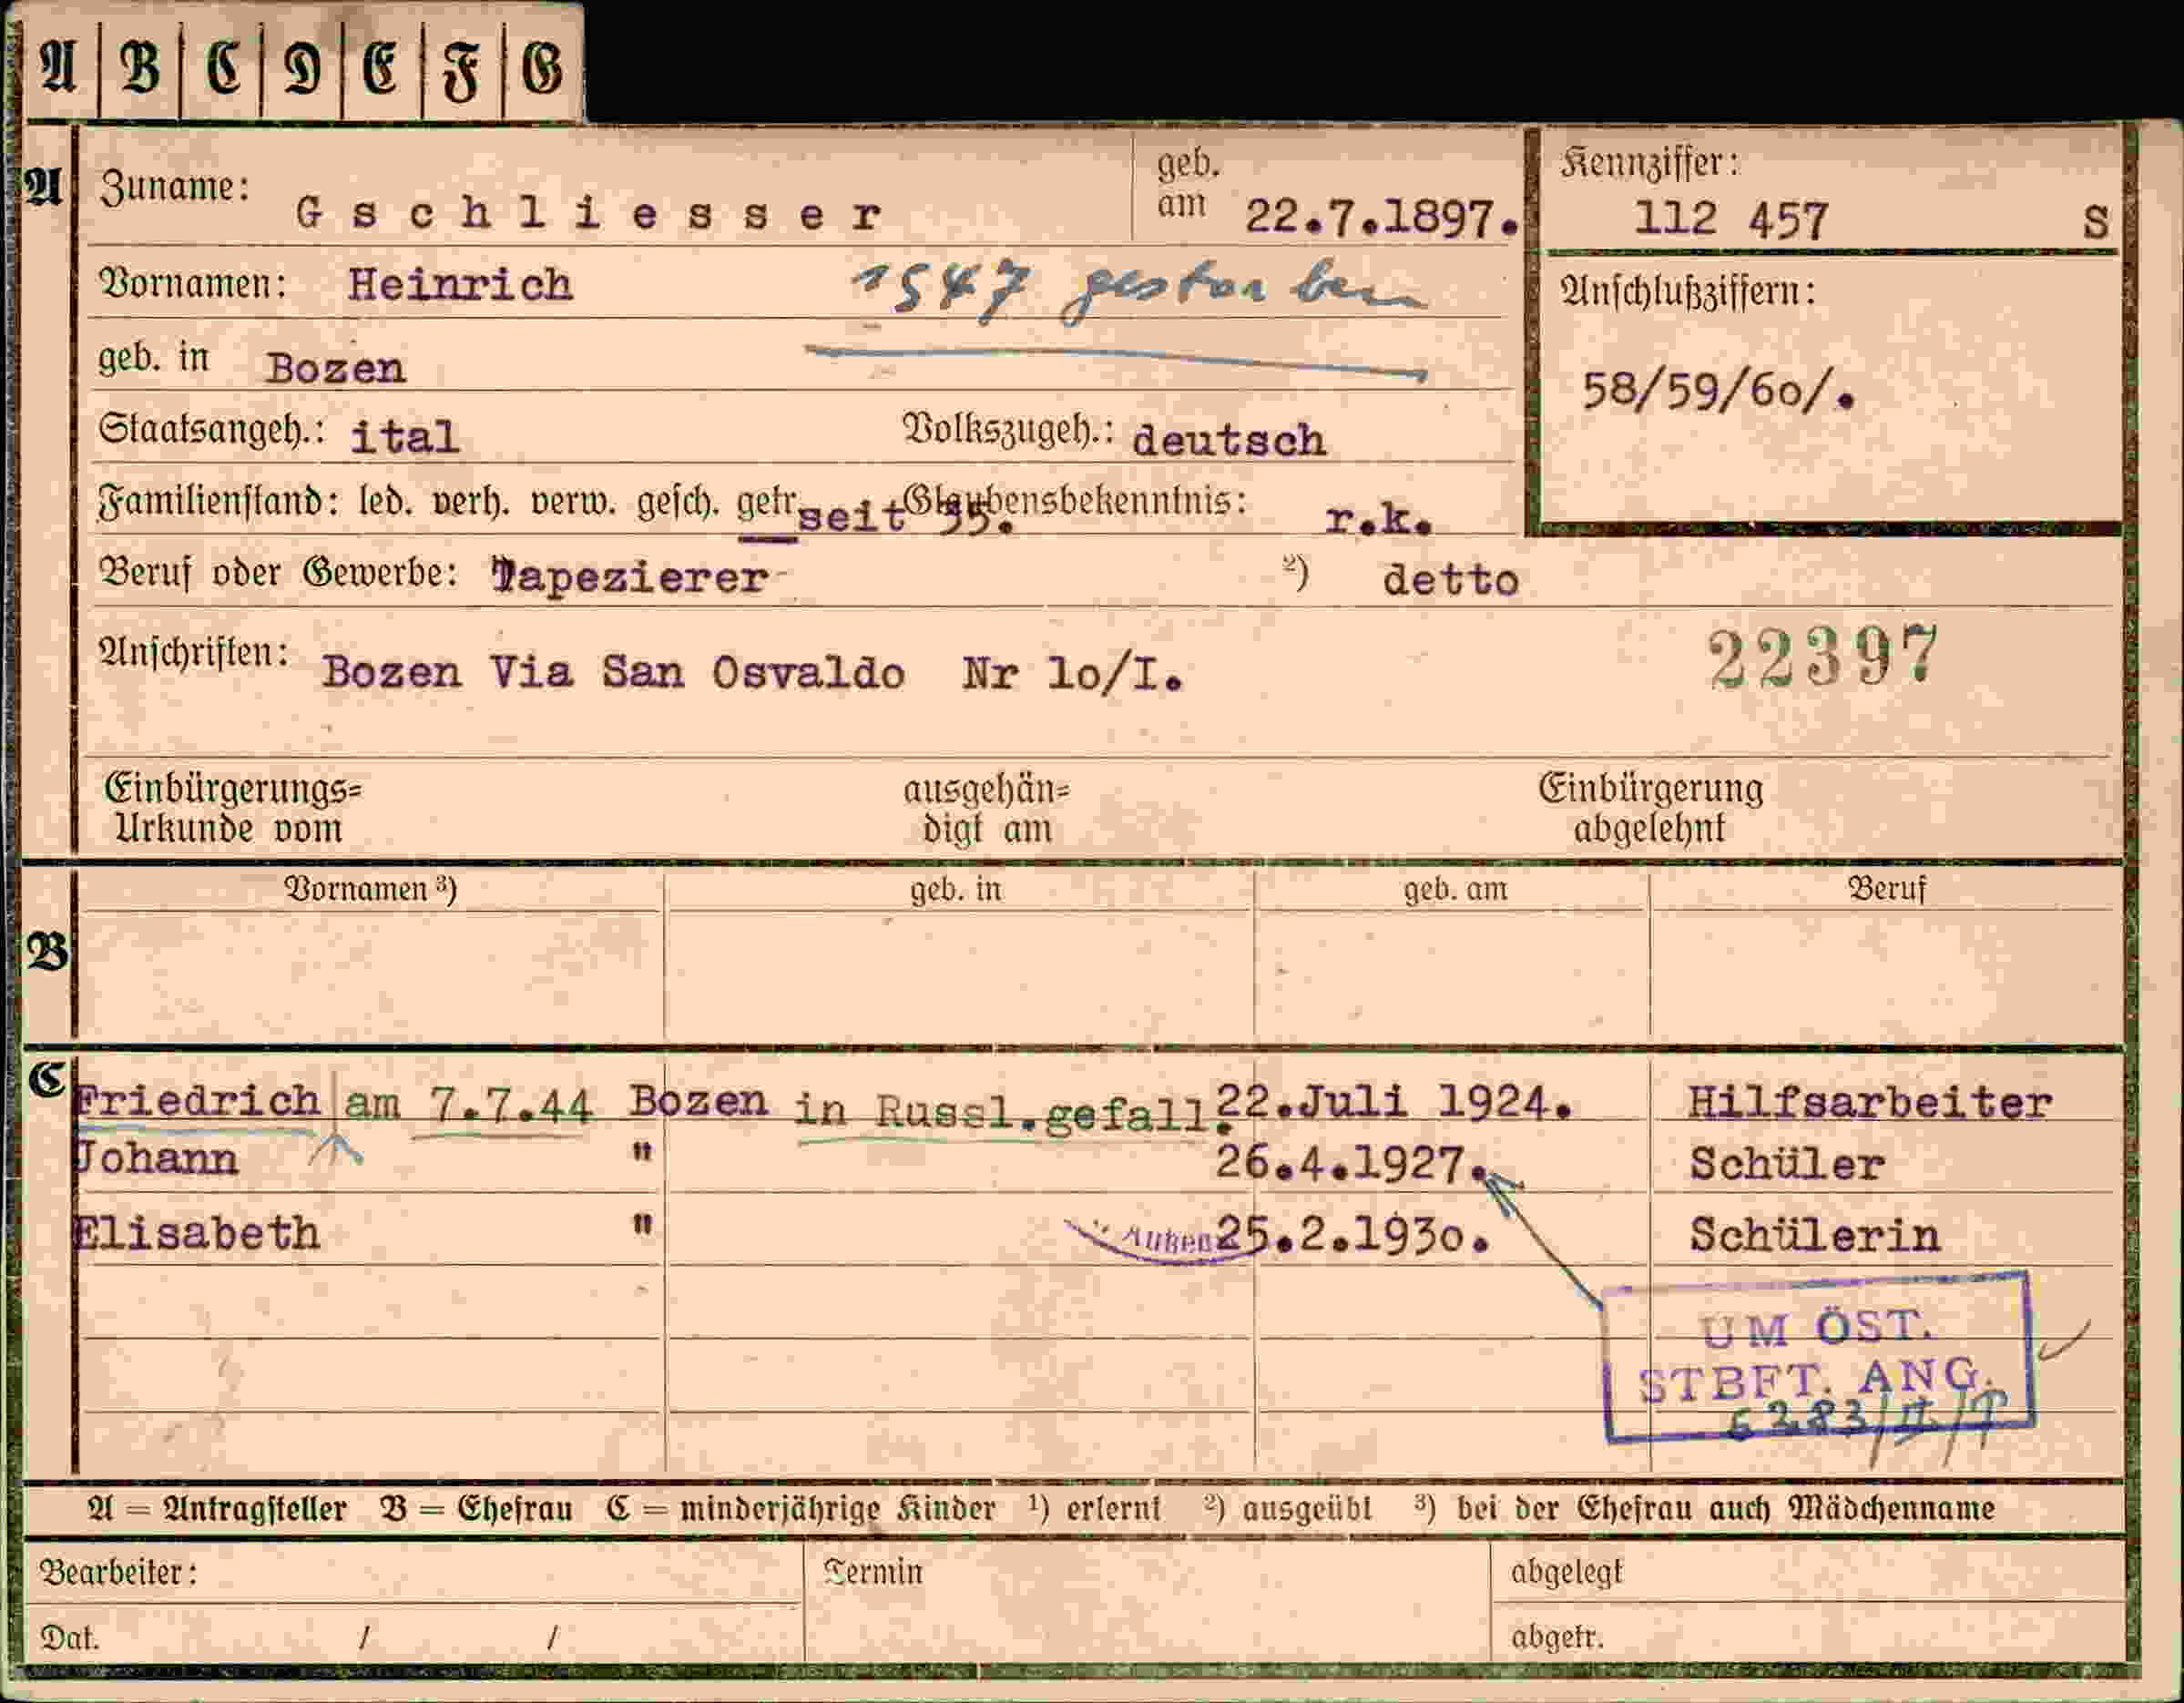 A B C D E F G
A Zuname: Gschliesser geb. am 22.7.1897. Kennziffer: 112 457 S
Vornamen: Heinrich 1947 gestorben Anschlußziffern:
geb. in Bozen 58/59/6o/.
Staatsangeh.: ital Volkszugeh.: deutsch
Familienstand: led. verh. verw. gesch. getr. seit 35. Glaubensbekenntnis: r.k.
Beruf oder Gewerbe: Tapezierer ²) detto
Anschriften: Bozen Via San Osvaldo Nr 1o/I. 22397
Einbürgerungs= ausgehän= Einbürgerung
Urkunde vom digt am abgelehnt
Vornamen ³) geb. in geb. am Beruf
B
C Friedrich am 7.7.44 Bozen in Russl.gefall. 22.Juli 1924. Hilfsarbeiter
Johann " 26.4.1927. Schüler
Elisabeth " 25.2.193o. Schülerin
UM ÖST.
STBFT. ANG.
A = Antragsteller B = Ehefrau C = minderjährige Kinder ¹) erlernt ²) ausgeübt ³) bei der Ehefrau auch Mädchenname
Bearbeiter: Termin abgelegt
Dat. / / abgetr.